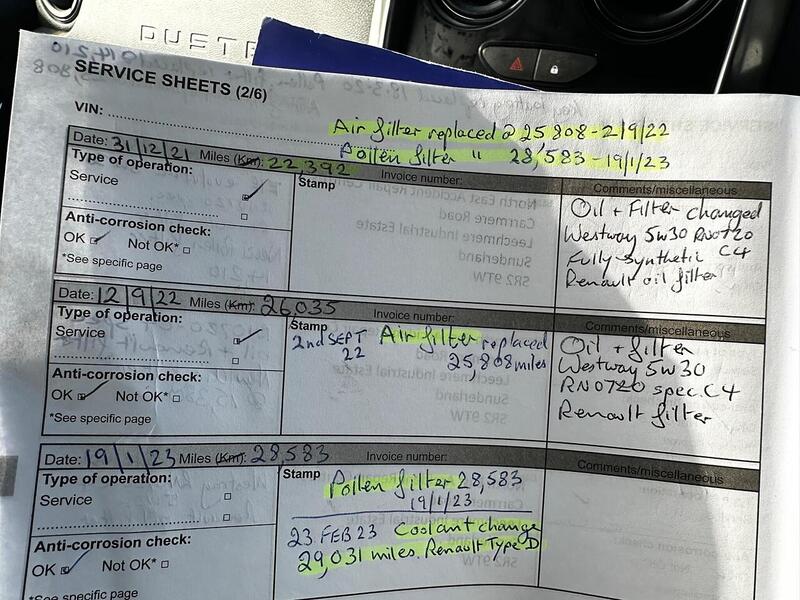 DUSTE
SERVICE SHEETS (2/6)
VIN:
Air filter replaced @ 25 808 - 2/9/22
Pollen filter " 28,583 - 19/1/23
Date: 31/12/21 Miles (Km): 22,392 Invoice number: Comments/miscellaneous
Type of operation:
Service
Stamp
Anti-corrosion check:
OK Not OK*
*See specific page
Oil + Filter changed
Westway 5w30 RN0720
Fully Synthetic C4
Renault oil filter
Date: 12/9/22 Miles (Km): 26,035 Invoice number: Comments/miscellaneous
Type of operation:
Service
Stamp
2nd SEPT 22
Air filter replaced
25,808 miles
Anti-corrosion check:
OK Not OK*
*See specific page
Oil + filter
Westway 5w30
RN0720 spec. C4
Renault filter
Date: 19/1/23 Miles (Km): 28,583 Invoice number: Comments/miscellaneous
Type of operation:
Service
Stamp
Pollen filter 28,583
19/1/23
23 FEB 23 Coolant change
29,031 miles. Renault Type D
Anti-corrosion check:
OK Not OK*
*See specific page
North East Accident Repair
Carrmere Road
Leechmere Industrial Estate
Sunderland
SR2 9TW